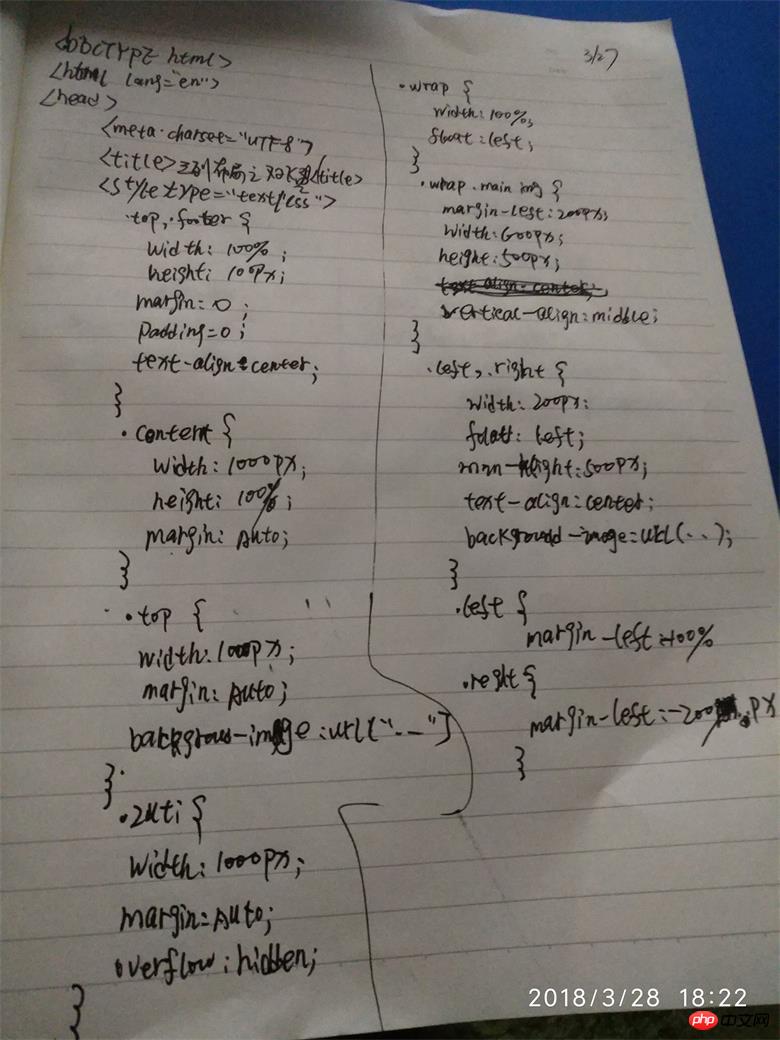 <DOCTYPE html>
<html lang="en">
<head>
<meta charset="UTF8">
<title>三列布局之双飞翼<title>
<style type="text/css">
.top, .footer {
width: 100% ;
height: 100px;
margin: 0 ;
padding=0 ;
text-align:center;
}
.content {
width: 1000px;
height: 100%;
margin: Auto;
}
.top {
width: 1000px;
margin: Auto;
:url("..")
}
.zuti {
width: 1000px;
margin: Auto;
overflow: hidden;
}
3/27
.wrap {
width: 100%;
float: left;
}
.wrap .main img {
margin-left: 200px;
width: 600px;
height: 500px;
vertical-align: middle;
}
.left, .right {
width: 200px:
float: left;
min-height: 500px;
text-align: center;
background-image: url(..);
}
.left {
margin-left:-100%
{
margin-left:-200px
}
2018/3/28 18:22
php 中文网